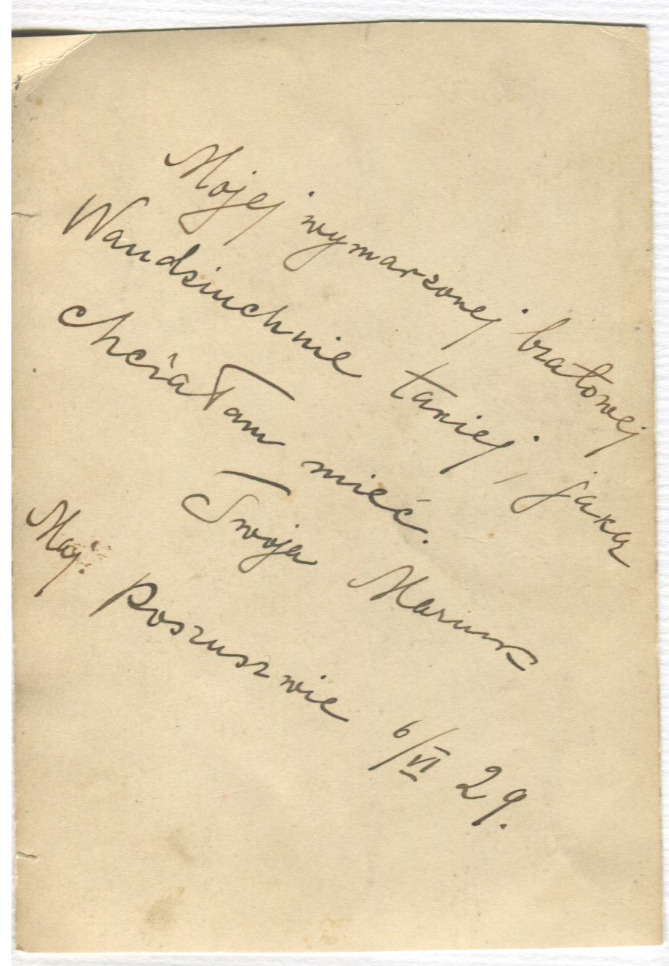 Mojej wymarzonej bratowej
Wandziuchnie takiej, jaką
chciałam mieć.
Twoja
Maj. Poszuszwie 6/VI 29.